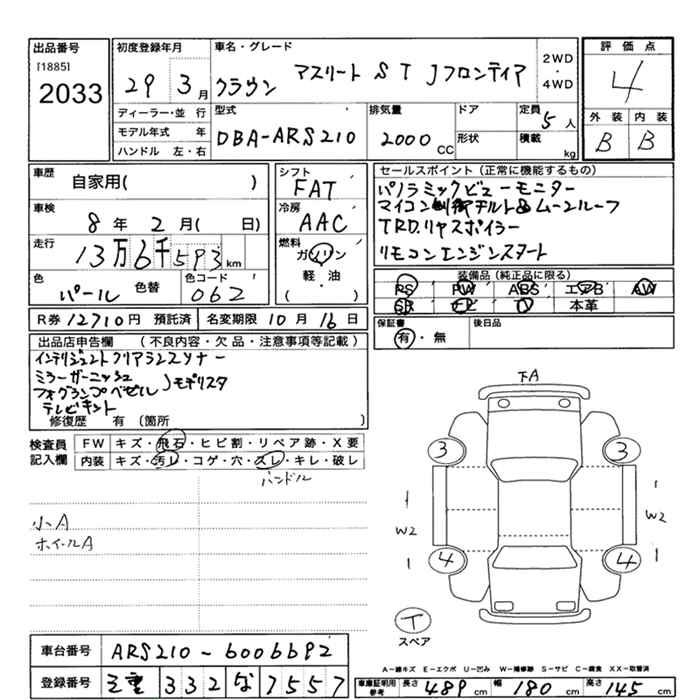 出品番号
[1885]
2033
初度登録年月
29 3月
車名・グレード
クラウン アスリート S T Jフロンティア
2WD
・
4WD
評価点
4
外装 内装
B B
ディーラー・並行
モデル年式 年
ハンドル 左・右
型式
DBA-ARS210
排気量
2000 CC
ドア
形状
定員
5人
積載
kg
車歴
自家用( )
車検
8年 2月( 日)
走行
13万6千593 km
色
パール
色替
色コード
062
シフト
FAT
冷房
AAC
燃料
ガソリン
軽・油
( )
セールスポイント(正常に機能するもの)
パノラミックビューモニター
マイコン制御チルト&ムーンルーフ
TRD.リヤスポイラー
リモコンエンジンスタート
装備品(純正品に限る)
PS PW ABS エアB AW
SR ナビ TV 本革
R券 12710円 預託済
名変期限 10月 16日
保証書
有・無
後日品
出品店申告欄 (不良内容・欠品・注意事項等記載)
インテリジェントクリアランスソナー
ミラーガーニッシュ
フォグランプベゼル Jモデリスタ
テレビキット
修復歴 有 (箇所 )
検査員
記入欄
FW キズ・飛石・ヒビ割・リペア跡・X要
内装 キズ・汚レ・コゲ・穴・スレ・キレ・破レ
ハンドル
小A
ホイールA
下A
3 3
1 1
W2 W2
1 1
4 4
T
スペア
車台番号 ARS210-6006692
登録番号 三重 332 な 7557
A―線キズ E―エクボ U―凹み W―補修跡 S―サビ C―腐食 XX―取替済
車庫証明用
参考
長さ 489 cm 幅 180 cm 高さ 145 cm